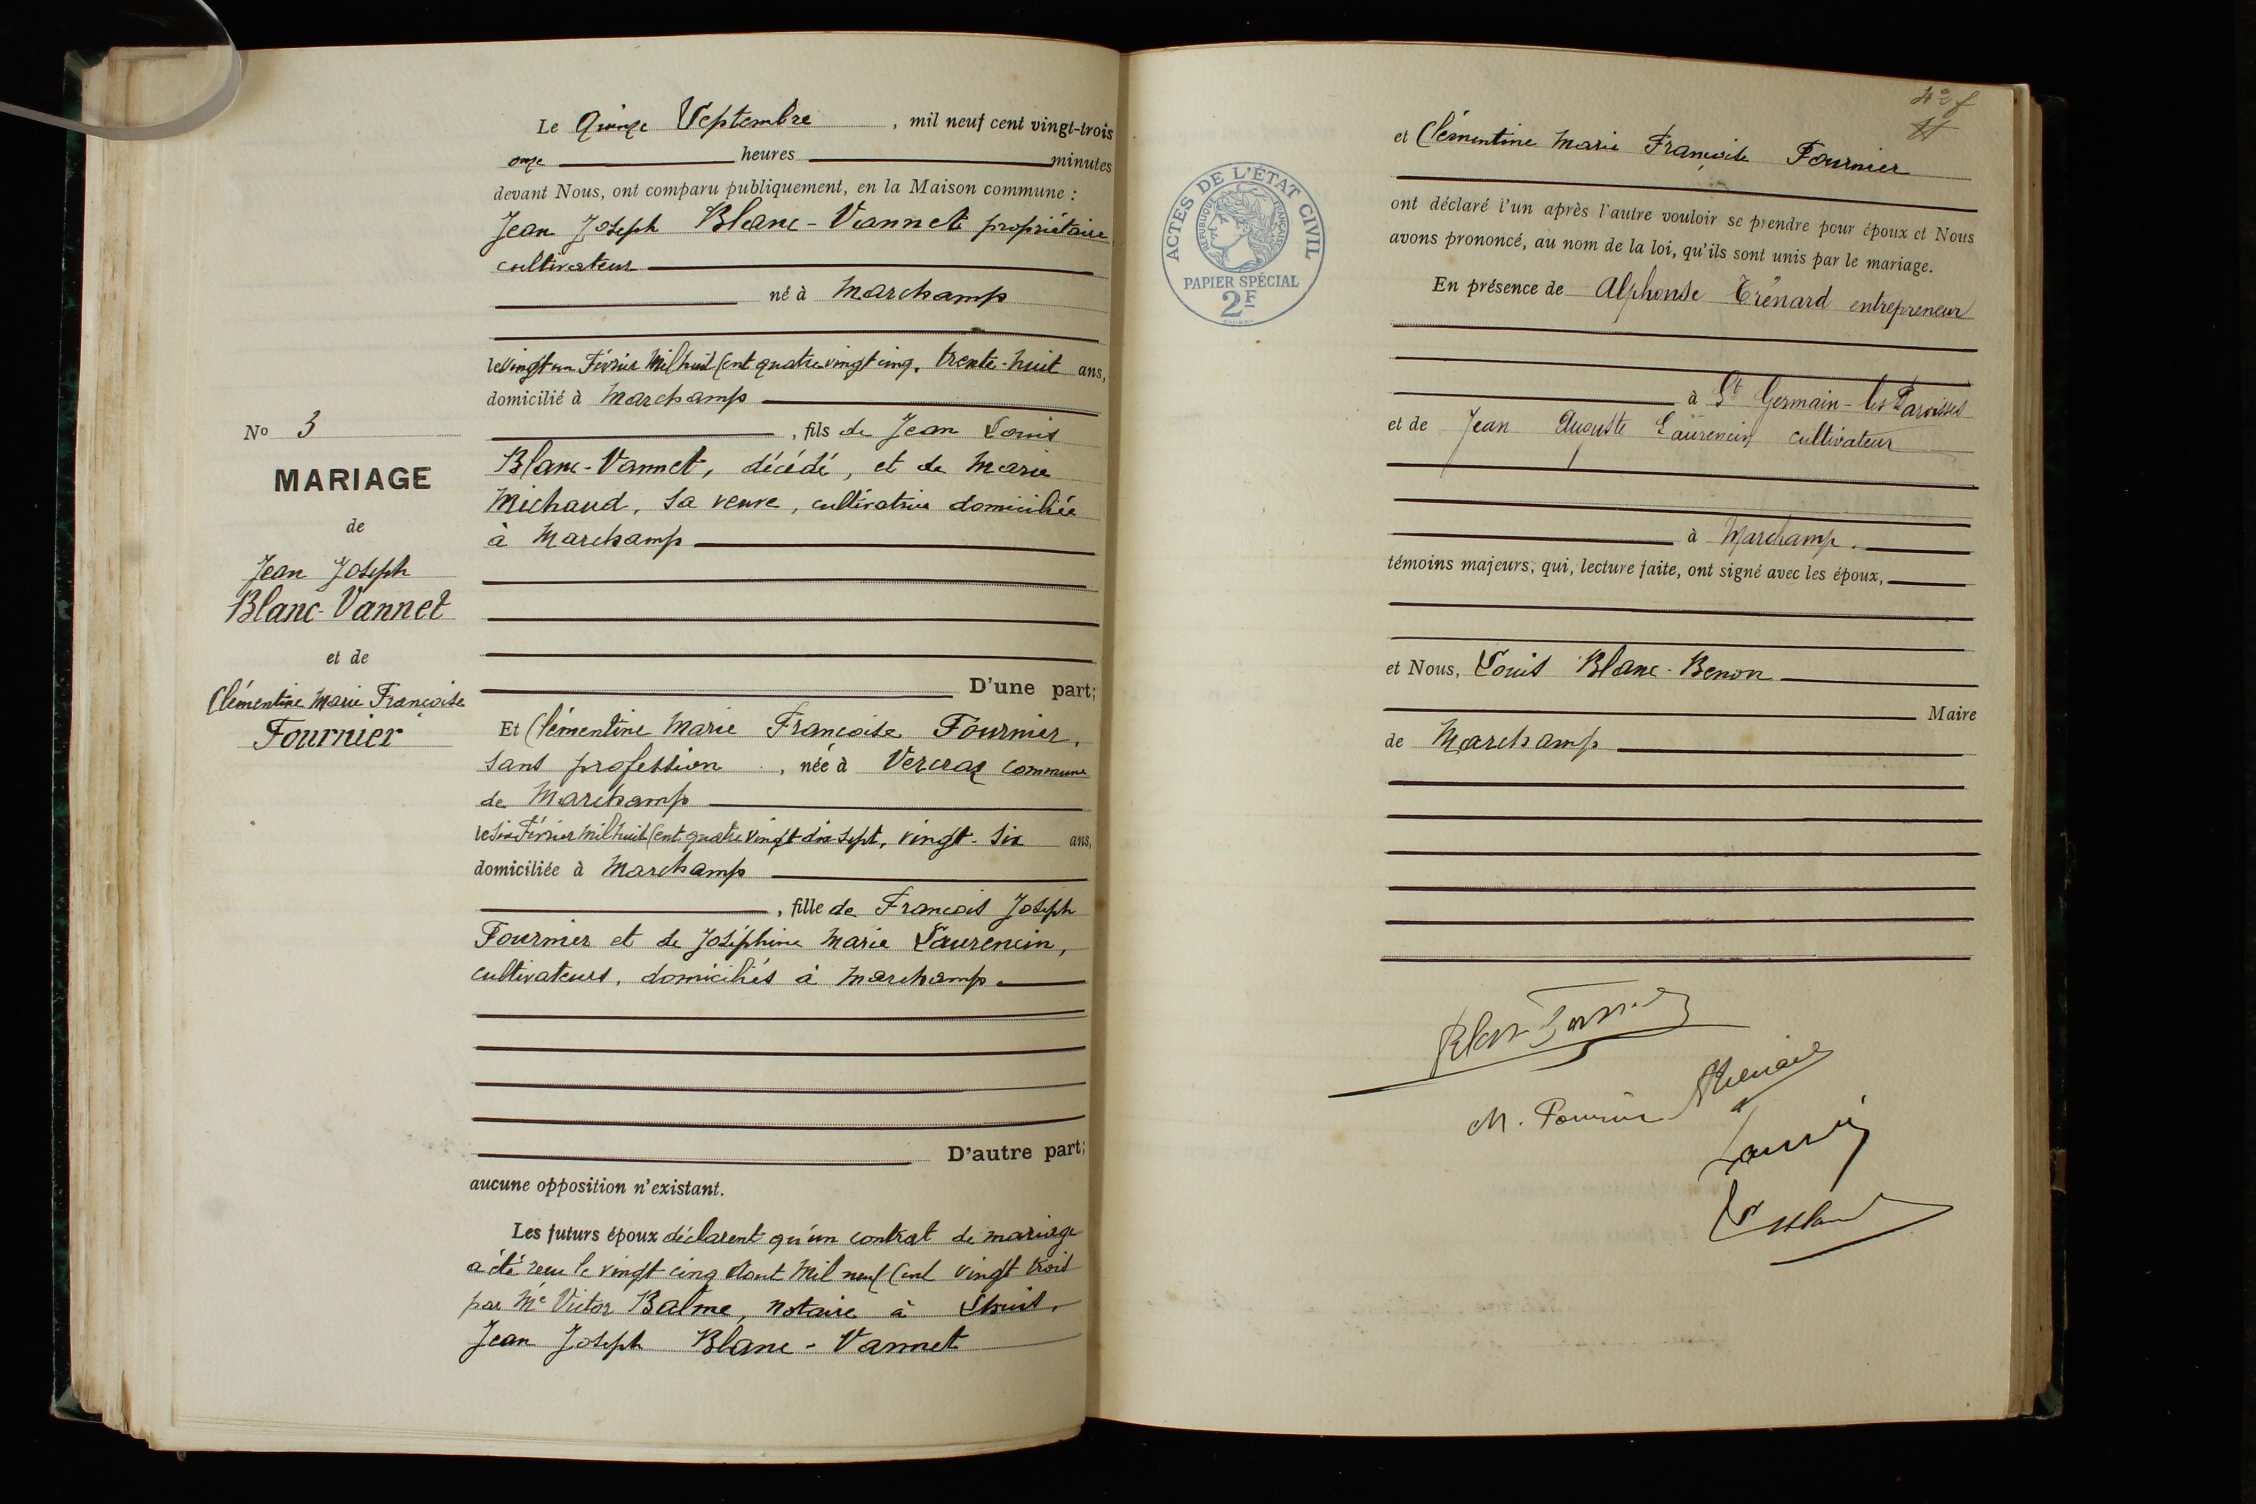 No 3
MARIAGE
de
Jean Joseph
Blanc-Vannet
et de
Clémentine Marie Françoise
Fournier
Le Quinze Septembre, mil neuf cent vingt-trois
onze heures minutes
devant Nous, ont comparu publiquement, en la Maison commune :
Jean Joseph Blanc-Vannet propriétaire
cultivateur
né à Marchamp
le vingt un Février Mil huit Cent quatre vingt cinq, trente-huit ans,
domicilié à Marchamp
, fils de Jean Louis
Blanc-Vannet, décédé, et de Marie
Michaud, sa veuve, cultivatrice domiciliée
à Marchamp
D'une part;
Et Clémentine Marie Françoise Fournier,
sans profession, née à Vercraz commune
de Marchamp
le six Février Mil huit Cent quatre vingt-dix sept, vingt-six ans,
domiciliée à Marchamp
, fille de François Joseph
Fournier et de Joséphine Marie Laurencin,
cultivateurs, domiciliés à Marchamp.
D'autre part;
aucune opposition n'existant.
Les futurs époux déclarent qu'un contrat de mariage
a été reçu le vingt cinq Aout Mil neuf Cent vingt trois
par Me Victor Balme, notaire à Lhuis.
Jean Joseph Blanc-Vannet
et Clémentine Marie Françoise Fournier
ont déclaré l'un après l'autre vouloir se prendre pour époux et Nous
avons prononcé, au nom de la loi, qu'ils sont unis par le mariage.
En présence de Alphonse Trénard entrepreneur
à St Germain-les Paroisses
et de Jean Auguste Laurencin cultivateur
à Marchamp.
témoins majeurs, qui, lecture faite, ont signé avec les époux,
et Nous, Louis Blanc-Benon
Maire
de Marchamp
ACTES DE L'ÉTAT CIVIL
RÉPUBLIQUE FRANÇAISE
PAPIER SPÉCIAL
2F
M. Fournier